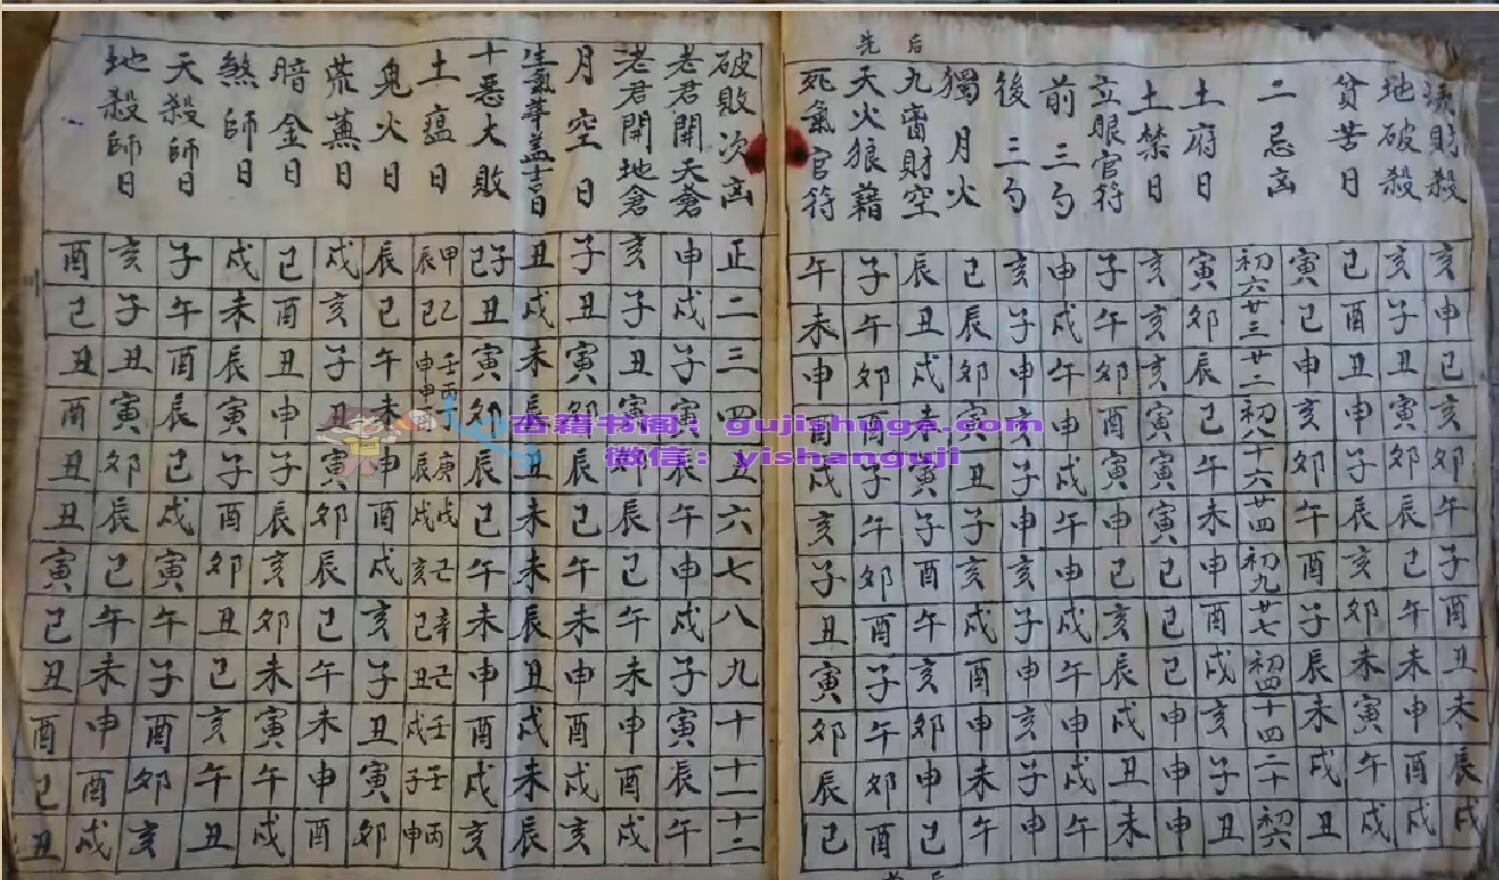 先后
財殺
亥申巳亥卯午子酉丑未辰戌
地破殺
亥子丑寅卯辰巳午未申酉戌
貧苦日
巳酉丑申子辰亥卯未寅午戌
二忌凶
寅巳申亥卯午酉子辰未戌丑
初六廿三廿二初八十六廿四初九廿七初四十四二十初六
土府日
寅卯辰巳午未申酉戌亥子丑
土禁日
亥亥亥寅寅寅巳巳巳申申申
立眼官符
子午卯酉寅申巳亥辰戌丑未
前三勺
申戌午申戌午申戌午申戌午
後三勺
亥子申亥子申亥子申亥子申
獨月火
巳辰卯寅丑子亥戌酉申未午
九財空
辰丑戌未寅子酉午亥卯申巳
天火狼藉
子午卯酉子午卯酉子午卯酉
死氣官符
午未申酉戌亥子丑寅卯辰巳
破敗次凶
正二三四五六七八九十十一十二
老君開天倉
申戌子寅辰午申戌子寅辰午
老君開地倉
亥子丑寅卯辰巳午未申酉戌
月空日
子丑寅卯辰巳午未申酉戌亥
生氣華盖吉日
丑戌未辰丑未未辰丑戌未辰
十惡大敗
子巳丑寅卯辰巳午未申酉戌亥
土瘟日
甲辰乙巳壬申庚辰戊戌亥辛巳丑壬戌壬子丙申
鬼火日
辰巳午未申酉戌亥子丑寅卯
荒蕪日
戌亥子丑寅卯辰巳午未申酉
暗金日
巳酉丑申子辰亥卯未寅午戌
煞師日
戌未辰寅子酉卯丑巳亥午丑
天殺師日
子午酉辰巳戌寅午子酉卯亥
地殺師日
亥子丑寅卯辰巳午未申酉戌
酉巳丑酉丑丑寅巳丑酉巳丑
古籍书阁：gujishuge.com
微信：yishanguji